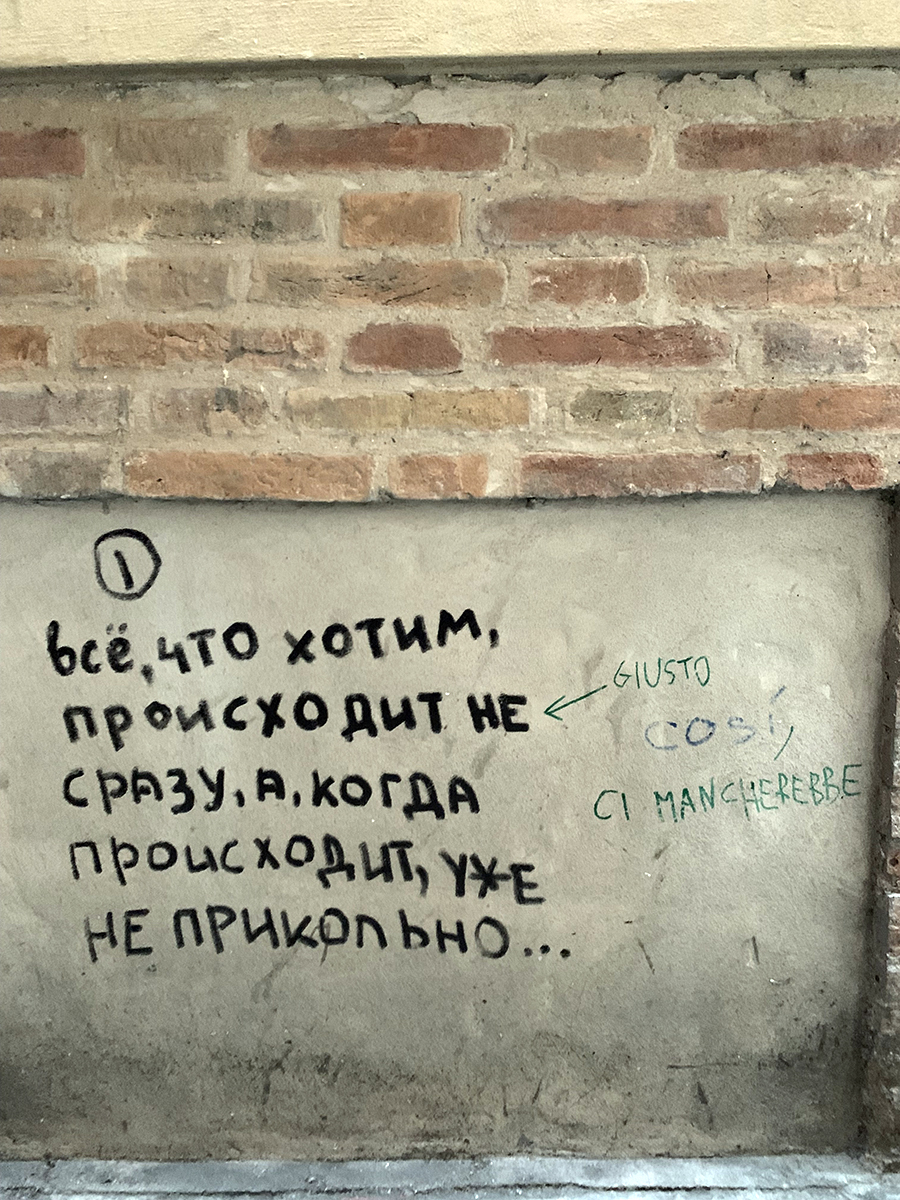 ①
всё, что хотим,
происходит не
сразу, а, когда
происходит, уже
не прикольно...
GIUSTO
COSÍ,
CI MANCHEREBBE